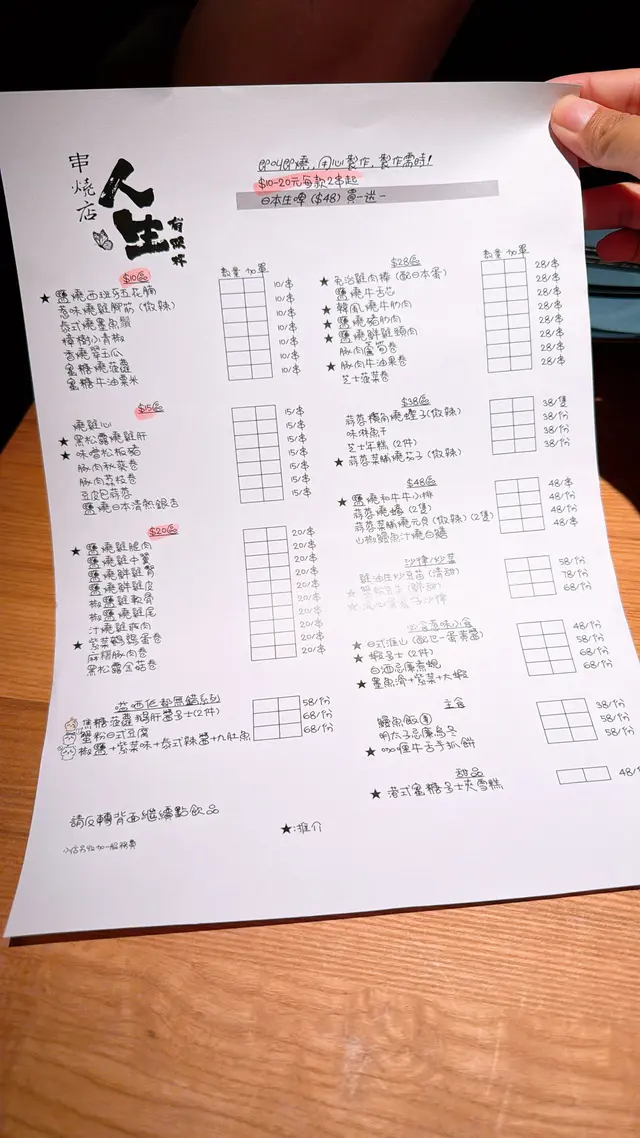 串燒店
人生
有限杯
即叫即燒，用心製作，製作需時！
$10-20元每款2串起
日本生啤 ($48) 買一送一
$10區
數量 加單
★ 鹽燒西班牙五花腩 10/串
惹味燒雞腳筋 (微辣) 10/串
泰式燒墨魚鬚 10/串
樟樹小青椒 10/串
香燒翠玉瓜 10/串
蜜糖燒菠蘿 10/串
蜜糖牛油粟米 10/串
$15區
燒雞心 15/串
★ 黑松露燒雞肝 15/串
★ 味噌松板豬 15/串
豚肉秋葵卷 15/串
豚肉荔枝卷 15/串
豆皮包蒜蓉 15/串
鹽燒日本清熱銀杏 15/串
$20區
★ 鹽燒雞腿肉 20/串
鹽燒雞中翼 20/串
鹽燒鮮雞腎 20/串
鹽燒鮮雞皮 20/串
椒鹽雞軟骨 20/串
椒鹽燒雞尾 20/串
汁燒雞 20/串
★ 紫菜鵪鶉蛋卷 20/串
麻糬豚肉卷 20/串
黑松露金菇卷 20/串
嗌西佢都無錯系列
焦糖菠蘿鵝肝醬多士(2件) 58/份
蟹粉日式豆腐 68/份
椒鹽+紫菜味+泰式辣醬+九肚魚 68/份
請反轉背面繼續點飲品
小店另收加一服務費
$28區
數量 加單
★ 免治雞肉棒 (配日本蛋) 28/串
鹽燒牛舌芯 28/串
★ 韓風燒牛肋肉 28/串
★ 鹽燒豬肋肉 28/串
★ 鹽燒鮮雞頸肉 28/串
豚肉蘆筍卷 28/串
★ 豚肉牛油果卷 28/串
芝士菠菜卷 28/串
$38區
蒜蓉橫角燒蟶子(微辣) 38/隻
味淋魚干 38/份
芝士年糕 (2件) 38/份
★ 蒜蓉菜脯燒茄子 (微辣) 38/份
$48區
★ 鹽燒和牛牛小排 48/串
蒜蓉燒蠔 (2隻) 48/份
蒜蓉菜脯燒元貝 (微辣) (2隻) 48/份
山椒鰻魚汁燒白鱔 48/串
沙律/炒菜
豉油王炒豆苗 (清幼) 58/份
78/份
68/份
必食惹味小食
★ 日式淮山 (配包一蛋素醬) 48/份
★ 蝦多士 (2件) 58/份
白酒忌廉煮蜆 68/份
★ 墨魚滑+紫菜+大蝦 68/份
主食
鰻魚飯 38/份
明太子忌廉烏冬 58/份
★ 咖喱牛舌手抓餅 58/份
甜品
★ 港式蜜糖多士夾雪糕 48/
★:推介